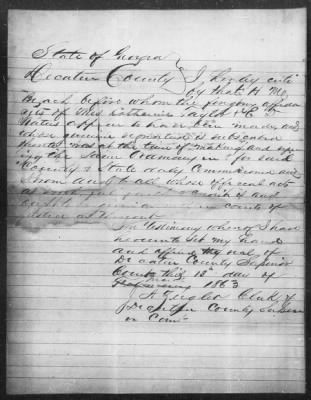 State of Georgia
Decatur County I hereby certi
fy that H. M.
Beach before whom the foregoing affida
vits of Mrs Catharine Taylor & C. D.
appear to have been made, and
whose genuine signature is subscribed
thereto, was at the time of making and sign
ing the same Ordinary in & for said
County & State duly Commissioned and
Sworn and to all whose official acts
full faith and credit is and
ought to be given in courts of
justice and thereout
In testimony whereof I have
hereunto set my hand
and affixed my seal of
Decatur County Superior
Court this 12th day of
1863
Clerk of
Decatur County Superi
or Court